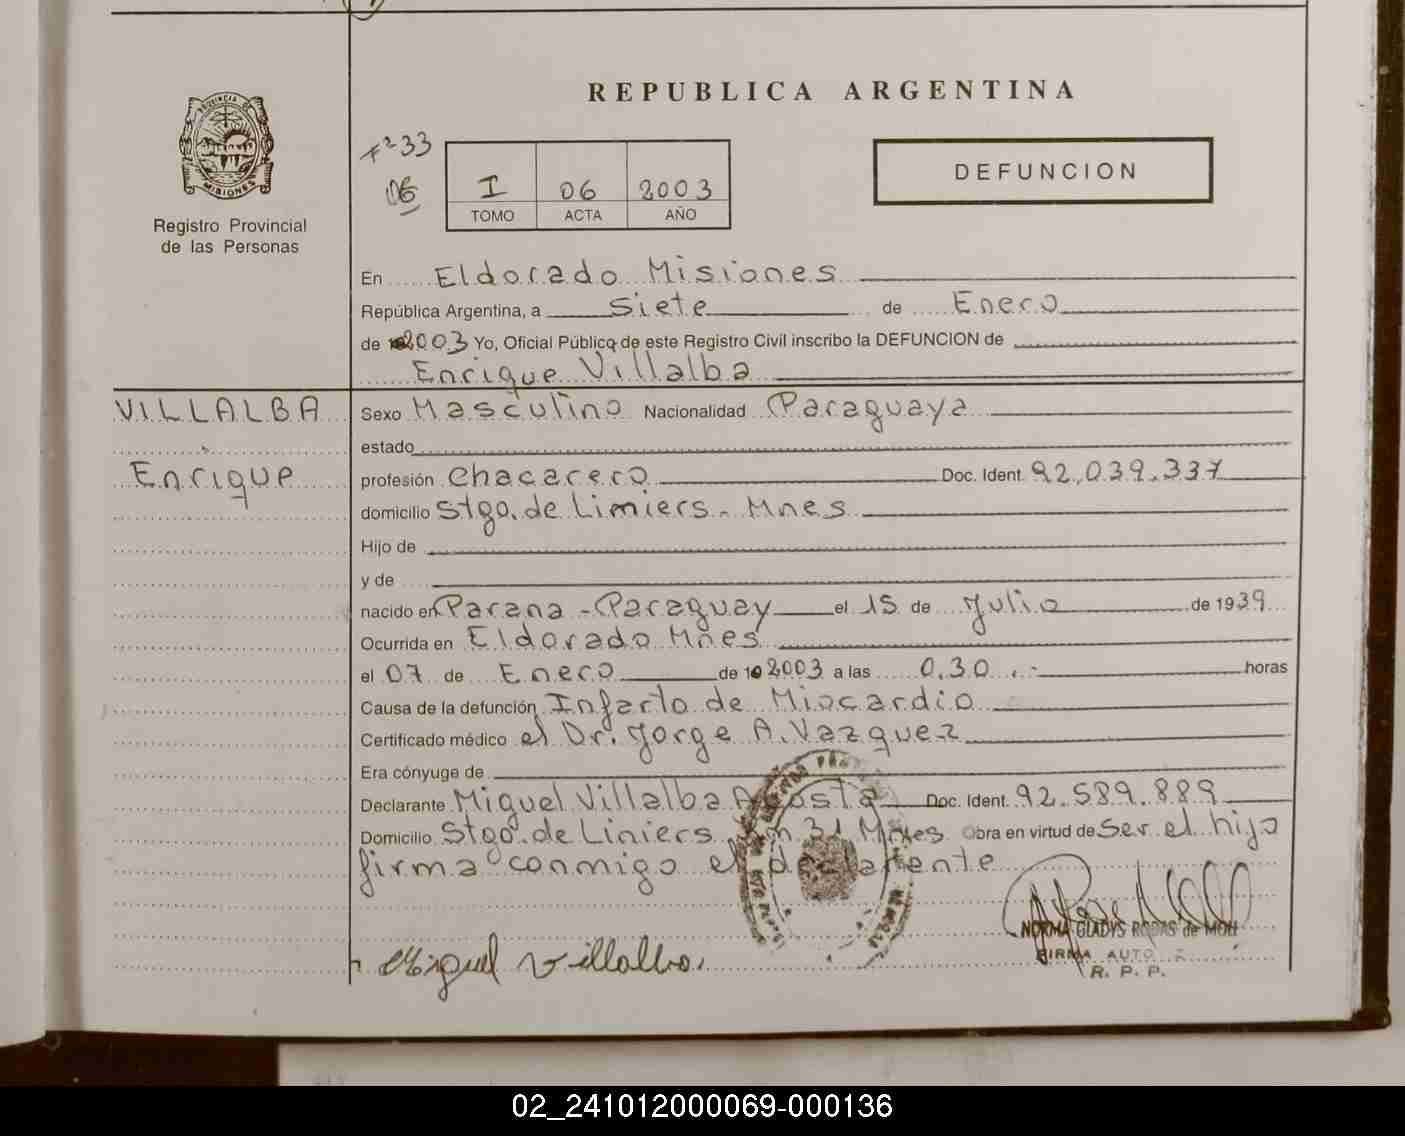 REPUBLICA ARGENTINA
PROVINCIA DE
MISIONES
Registro Provincial
de las Personas
Fº 33
06
I 06 2003
TOMO ACTA AÑO
DEFUNCION
En Eldorado Misiones
República Argentina, a Siete de Enero
de 2003 Yo, Oficial Público de este Registro Civil inscribo la DEFUNCION de
Enrique Villalba
VILLALBA
Enrique
Sexo Masculino Nacionalidad Paraguaya
estado
profesión Chacarero Doc. Ident. 92.039.337
domicilio Stgo. de Limiers. Mnes
Hijo de
y de
nacido en Parana - Paraguay el 15 de Julio de 1939
Ocurrida en Eldorado Mnes
el 07 de Enero de 2003 a las 0,30 horas
Causa de la defunción Infarto de Miocardio
Certificado médico el Dr. Jorge A. Vazquez
Era cónyuge de
Declarante Miguel Villalba Acosta Doc. Ident. 92.589.889
Domicilio Stgo. de Liniers Km 31 Mnes. Obra en virtud de Ser el hijo
firma conmigo el declarente
Miguel Villalba
NORMA GLADYS RODAS de MOLL
FIRMA AUTO
R. P. P.
02_241012000069-000136